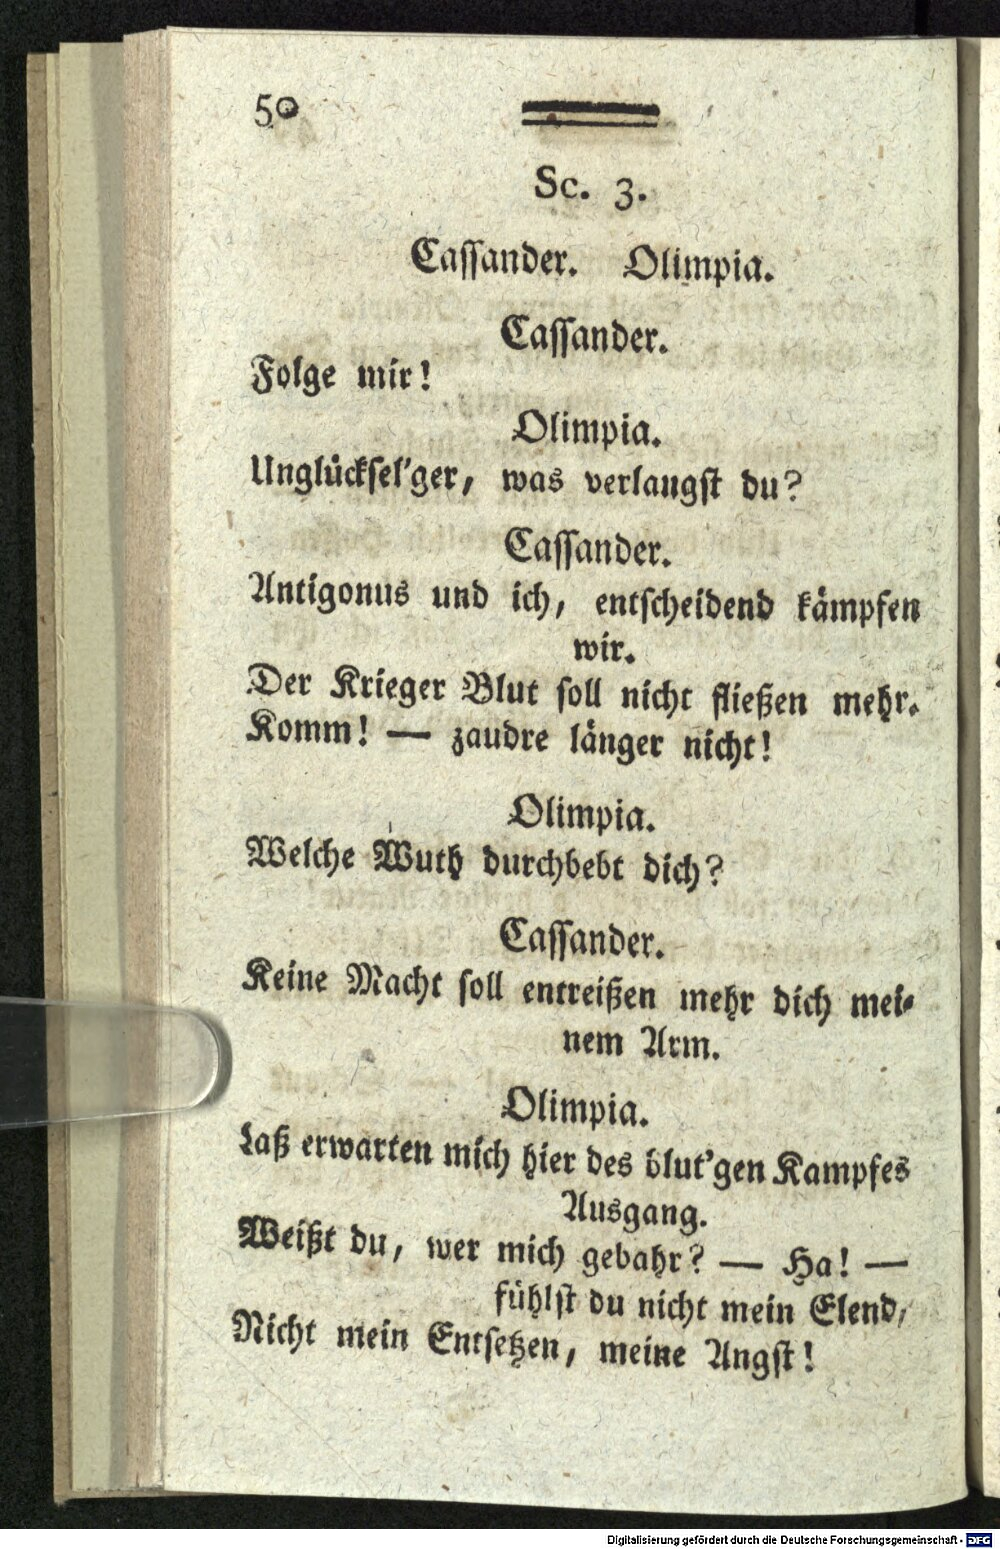 50
Sc. 3.
Cassander. Olimpia.
Cassander.
Folge mir!
Olimpia.
Unglücksel'ger, was verlangst du?
Cassander.
Antigonus und ich, entscheidend kämpfen
wir.
Der Krieger Blut soll nicht fließen mehr.
Komm! — zaudre länger nicht!
Olimpia.
Welche Wuth durchbebt dich?
Cassander.
Keine Macht soll entreißen mehr dich mei-
nem Arm.
Olimpia.
Laß erwarten mich hier des blut'gen Kampfes
Ausgang.
Weißt du, wer mich gebahr? — Ha! —
fühlst du nicht mein Elend,
Nicht mein Entsetzen, meine Angst!
Digitalisierung gefördert durch die Deutsche Forschungsgemeinschaft - DFG